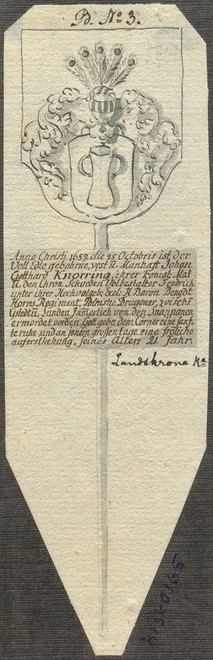 D. No 3.
Anno Christi 1658 die 25 Octobris ist der
Voll Edle gebohrne, vest u. Manhaft Johan
Gotthard Knorring, ihrer Königl. Mat
u. den Chron Schweden Volbestalter Fendrich
unter ihrer Hochwolgeb: Excel: H. Baron Bengdt
Horns Regiment, Dragoner, zwischn
Ystedt u. Lunden Jämerlich von den Snapanen
ermordet worden Gott gebe dem Cörper eine sanf
te ruhe und an jenem grossen tage eine fröliche
auferstehung, seines Alters 21 Jahr.
Landskrona Ka